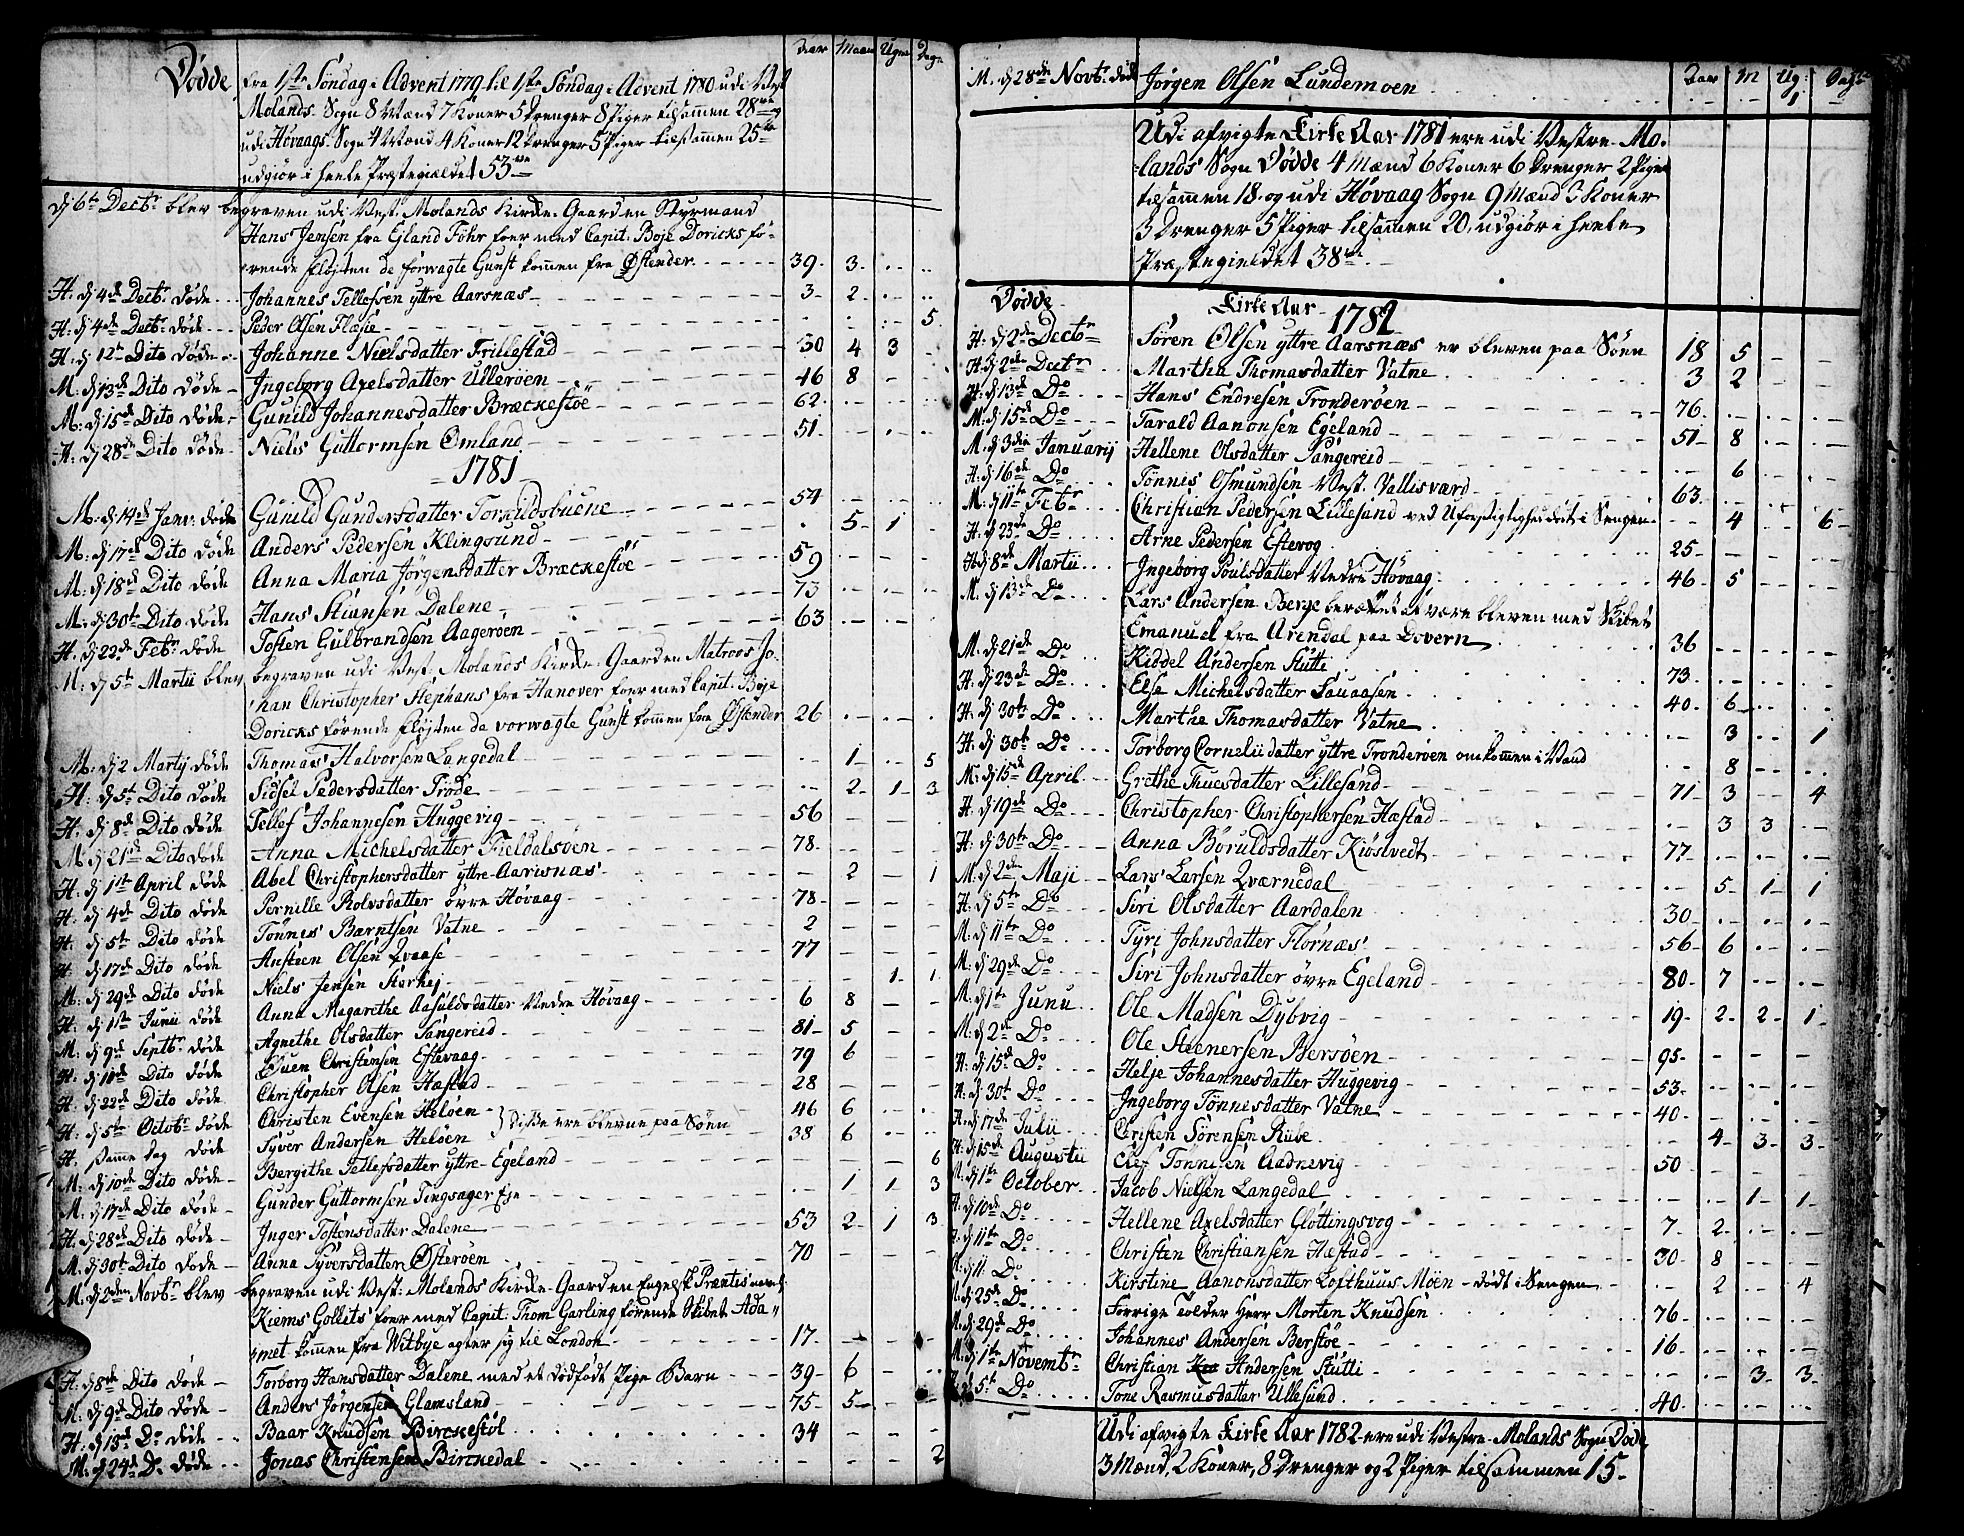 Aar Maan Ugr Dage
Dødde fra 1ste Søndag i Advent 1779 til 1ste Søndag i Advent 1780 udi Vest
Molands Sogn 8 Mænd 7 Koner 5 Drenger 8 Piger tilsammen 28
udi Høvaags Sogn 4 Mænd 4 Koner 12 Drenger 5 Piger tilsammen 25
udgiør i heele Præstegieldet 53
dj 6te Decbr blev begraven udi Vest. Molands Kirke-Gaarden Styrmand
Hans Jensen fra Ejland Föhr foer med Capit: Boje Doricks fø-
rende Fløjten de forwagte Gunst kommen fra Østender 39 3
H: dj 4de Decbr døde Johannes Tellefsen yttre Aarsnæs 3 2
H: dj 4de Decbr døde Peder Olsen Flæsie 5
H: dj 12te Dito døde Johanne Nielsdatter Frillestad 30 4 3
M: dj 13de Dito døde Ingebørg Axelsdatter Ulleröen 46 8
M: dj 15de Dito døde Gunild Johannesdatter Bræckestöe 62
H: dj 28de Dito døde Niels Guttormsen Omland 51
1781
M: dj 14de Janv: døde Gunild Gundersdatter Torkildsbuene 54
M: dj 17de Dito døde Anders Pedersen Klingsund 5 1
M: dj 18de Dito døde Anna Maria Jørgensdatter Bræckestöe 59
M: dj 30te Dito døde Hans Stiansen Dalene 73
H: dj 22de Febr døde Tosten Gulbrandsen Aageröen 63
M: dj 5te Martii blev begraven udi Vest. Molands Kirke-Gaarden Matroos Jo-
han Christopher Stephans fra Hanover foer med Capit: Boje
Doricks førende Fløjten de vorwagte Gunst kommen fra Østender 26
M: dj 2 Martij døde Thomas Halvorsen Langedal 1 5
H: dj 5te Dito døde Sidsel Pedersdatter Trøde 2 1 3
H: dj 8de Dito døde Tellef Johannesen Huggevig 56
M: dj 21de Dito døde Anna Michelsdatter Fieldalsöen 78
H: dj 1ste April døde Abel Christophersdatter yttre-Aarisnæs 2 1
H: dj 4de Dito døde Pernille Rolvsdatter øvre Høvaag 78
H: dj 5te Dito døde Tønnes Berntsen Vatne 2
H: dj 17de Dito døde Austeen Olsen Qvaase 77
M: dj 29de Dito døde Niels Jensen Starhej 1 1
H: dj 1ste Junii døde Anna Magarethe Aasuldsdatter Nedre Høvaag 6 8
M: dj 9de Septbr døde Agnethe Olsdatter Tangereid 81 5
H: dj 10de Dito døde Suen Christensen Eftevaag 79 6
H: dj 22de Dito døde Christopher Olsen Hæstad 28
H: dj 5te Octobr døde Christen Evensen Helöen 46 6
H. samme dag døde Syver Andersen Helöen } disse ere blevne paa Søen 38 6
M: dj 10de Dito døde Bergithe Tellefsdatter yttre-Egeland 6
M: dj 17de Dito døde Gunder Guttormsen Tingsager Eje 1 1 3
H: dj 28de Dito døde Inger Tostensdatter Dalene 53 2 1 3
M: dj 30te Dito døde Anna Syversdatter Østeröen 70
M: dj 2den Novbr blev begraven udi Vest: Molands Kirke-Gaarden Engelsk Prentis
Kiems Gollits foer med Capit: Thom Garling førende Skibet Ada
met kommen fra Witbye agter sig til London 17
H: dj 8de Dito døde Torborg Hansdatter Dalene med et dødfødt Pige Barn 39 6
M: dj 9de Dito døde Anders Jørgensen Glamsland 75 5
H: dj 15de Do døde Baar Knudsen Birckestøl 34
M: dj 24de Do døde Jonas Christensen Birckedal 2
Aar M Ug: Dage
M. dj 28de Novbr død Jørgen Olsen Lundemoen 1
Udi afvigte Kirke Aar 1781 ere udi Vestre-Mo-
lands Sogn Dødde 4 Mænd 6 Koner 6 Drenger 2 Piger
tilsammen 18. og udi Høvaag Sogn 9 Mænd 3 Koner
3 Drenger 5 Piger tilsammen 20, udgiør i heele
Præstegieldet 38
Dødde Kirke Aar 1782
H: dj 2de Decbr Søren Olsen yttre Aarsnæs er bleven paa Søen 18 5
H: dj 2de Decbr Martha Thomasdatter Vatne 3 2
H: dj 13de Do Hans Endresen Tronderöen 76
M: dj 15de Do Tarald Aanonsen Egeland 51 8
M. dj 3die Januarij Hellene Olsdatter Tangereid 6
H: dj 16de Do Tønnis Osmundsen Vest. Vallisværd 63
M: dj 11te Febr Christian Pedersen Lillesand ved Uforsigtighed død i Sengen 4 6
H: dj 23de Do Arne Pedersen Eftevog 25
H: dj 8de Martii Ingeborg Poulsdatter Nedre Høvaag 46 5
M. dj 13de Do Lars Andersen Berge berettet at være bleven med Skibet
Emanuel fra Arendal paa Dovern 36
M: dj 21de Do Kiddel Andersen Stütti 73
H: dj 23de Do Else Michelsdatter Sauaasen 40 6
H: dj 30te Do Marthe Thomasdatter Vatne 3 1
H: dj 30te Do Torborg Corneliidatter yttre Tronderöen omkommen i Vand 8
M: dj 15de April Grethe Thuesdatter Lillesand 71 3 4
H: dj 19de Do Christopher Christophersen Hæstad 3 3
H: dj 30te Do Anna Böruldsdatter Kiöstvedt 77
M: dj 2den Maji Lars Larsen Qværnedal 5 1 1
H: dj 5te Do Siri Olsdatter Aardalen 30
M: dj 11te Do Tyri Johnsdatter Flörnæs 56 6
M: dj 29de Do Siri Johnsdatter øvre Egeland 80 7
M: dj 1te Junii Ole Madsen Dybvig 19 2 2 1
M: dj 2de Do Ole Steenersen Bersöen 95
H: dj 15de Do Helje Johannesdatter Huggevig 53
H: dj 30te Do Ingeborg Tønnesdatter Vatne 40
H: dj 17de Julii Christen Sørensen Rübe 4 3 3
H: dj 15de Augustii Elef Tønnesen Aadnevig 50
M: dj 1te October Jacob Nielsen Langedal 1 1
H: dj 10de Do Hellene Axelsdatter Glottingsvog 7 2
H: dj 11te Do Christen Christiansen Hæstad 30 8
M: dj 11 Do Kirstine Aanonsdatter Lofthuus Möen - Dödt i Sengen 2 4
M: dj 25de Do Forrige Tolder Herr Morten Knudsen 76
M: dj 29de Do Johannes Andersen Berstöe 16
M: dj 1te Novembr Christian Andersen Stutti 3 3
dj 5te Do Tone Rasmusdatter Ullesund 40
Udi afvigte Kirke Aar 1782 ere udi Vestre-Molands Sogn Døde
3 Mænd, 2 Koner, 8 Drenger og 2 Piger tilsammen 15